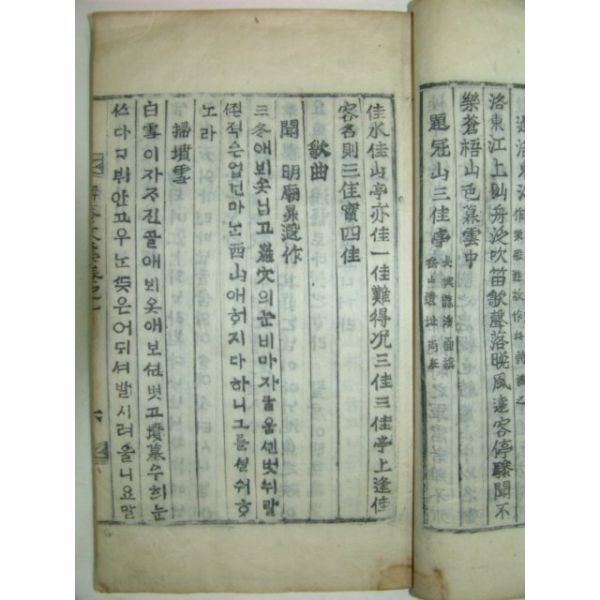 洛東江上仙舟泛吹笛歌聲落晚風遠客停驂聞不
樂蒼梧山色暮雲中
題冠山三佳亭
佳水佳山亭亦佳一佳難得況三佳三佳亭上逢佳
客名則三佳實四佳
歌曲
聞 明廟昇遐作
三冬애뵈옷닙고巖穴의눈비마자굴움낀벗뉘랄
낀적은업건마ᄂᆞᆫ西山애ᄒᆡ지다하니그를셜워ᄒᆞ
노라
掃墳雪
白雪이자자진골애뵈옷애보션벗고墳墓우희눈
쓰다그뷔안고우노ᄯᅳᆺ은어듸셔발시려울니요말